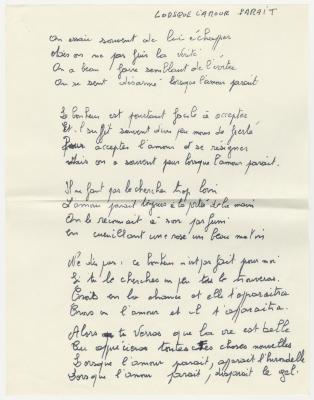 LORSQUE L'AMOUR PARAIT
On essaie souvent de lui échapper
Mais on ne pas fuir la vérité
On a beau faire semblant de l'éviter
On se sent désarmé lorsque l'amour parait
Le bonheur est pourtant facile à accepter
Et il suffit souvent d'un peu moins de fierté
Pour accepter l'amour et se résigner
Mais on a souvent peur lorsque l'amour parait.
Il ne faut pas le chercher trop loin
L'amour parait toujours à la portée de la main
On le reconnait à son parfum
En cueillant une rose un beau matin
Ne dis pas : ce bonheur n'est pas fait pour moi
Si tu le cherches un peu tu le trouveras.
Crois en la chance et elle t'apparaitra
Crois en l'amour et il t'apparaitra.
Alors tu verras que la vie est belle
Tu apprécieras toutes les choses nouvelles
Lorsque l'amour parait, apparait l'hirondelle
Lorsque l'amour parait, disparait le gel.